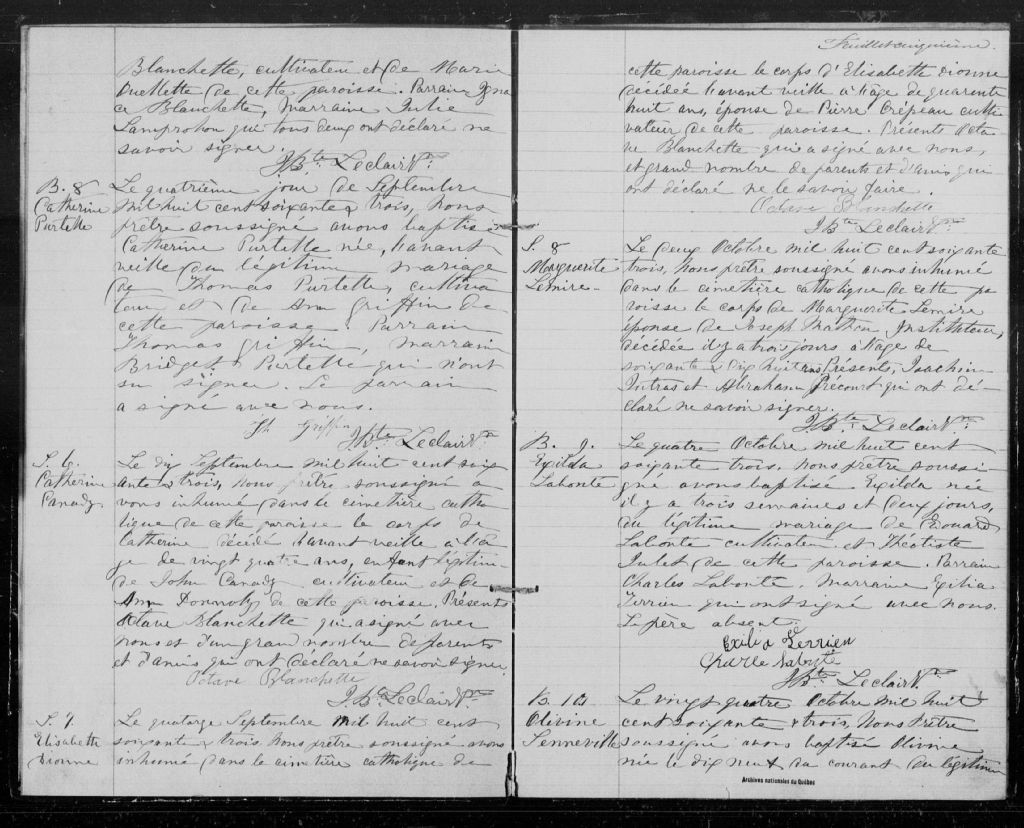 Blanchette, cultivateur et de Marie
Ouellette de cette paroisse. Parrain Igna
ce Blanchette, Marraine Julie
Lamprohon qui tous deux ont déclaré ne
savoir signer.
J. Bte Leclair Ptre
B. 8
Catherine
Purtelle
Le quatrième jour de Septembre
mil huit cent soixante & trois, Nous
prêtre soussigné avons baptisé
Catherine Purtelle née, l'avant
veille du légitime mariage
de Thomas Purtelle, cultiva
teur et de Ann Griffin de
cette paroisse. Parrain
Thomas Griffin, marraine
Bridget Purtelle qui n'ont
su signer. Le parrain
a signé avec nous.
Th. Griffin
J. Bte Leclair Ptre
S. 6.
Catherine
Canady
Le dix Septembre mil huit cent soix
ante & trois, Nous prêtre soussigné a
vons inhumé dans le cimetière catho
lique de cette paroisse le corps de
Catherine décédée l'avant veille à l'â
ge de vingt quatre ans, enfant légitime
de John Canady cultivateur et de
Ann de cette paroisse, Présents
Octave Blanchette qui a signé avec
nous et d'un grand nombre de parents
et d'amis qui ont déclaré ne savoir signer.
Octave Blanchette
J. Bte Leclair Ptre
S. 7
Elisabeth
Dionne
Le quatorze Septembre mil huit cent
soixante & trois, Nous prêtre soussigné avons
inhumé dans le cimetière catholique de
Feuillet cinquième.
cette paroisse le corps d'Elisabeth Dionne
décédée l'avant veille à l'âge de quarante
huit ans, épouse de Pierre Crépeau culti
vateur de cette paroisse. Présents Octa
ve Blanchette qui a signé avec nous,
et grand nombre de parents et d'amis qui
ont déclaré ne le savoir faire.
Octave Blanchette
J. Bte Leclair Ptre
S. 8
Marguerite
Lemire
Le deux Octobre mil huit cent soixante
trois, Nous prêtre soussigné avons inhumé
dans le cimetière catholique de cette pa
roisse le corps de Marguerite Lemire
épouse de Joseph Mathon Instituteur,
décédée il y a trois jours à l'âge de
soixante & dix huit ans Présents, Joachim
Intras et Abraham Précourt qui ont dé
claré ne savoir signer.
J. Bte Leclair Ptre
B. 9.
Exilda
Labonté
Le quatre Octobre mil huit cent
soixante trois. Nous prêtre soussi
gné avons baptisé Exilda née
il y a trois semaines et deux jours,
du légitime mariage de Edouard
Labonté cultivateur et Théotiste
de cette paroisse. Parrain
Charles Labonté. Marraine Exilia
Terrien qui ont signé avec nous.
Le père absent.
Exilia Terrien
Charle Labonté
J. Bte Leclair Ptre
B. 10
Olivine
Senneville
Le vingt quatre Octobre mil huit
cent soixante & trois, Nous Prêtre
soussigné avons baptisé Olivine
née le dix neuf du courant du légitime
Archives nationales du Québec